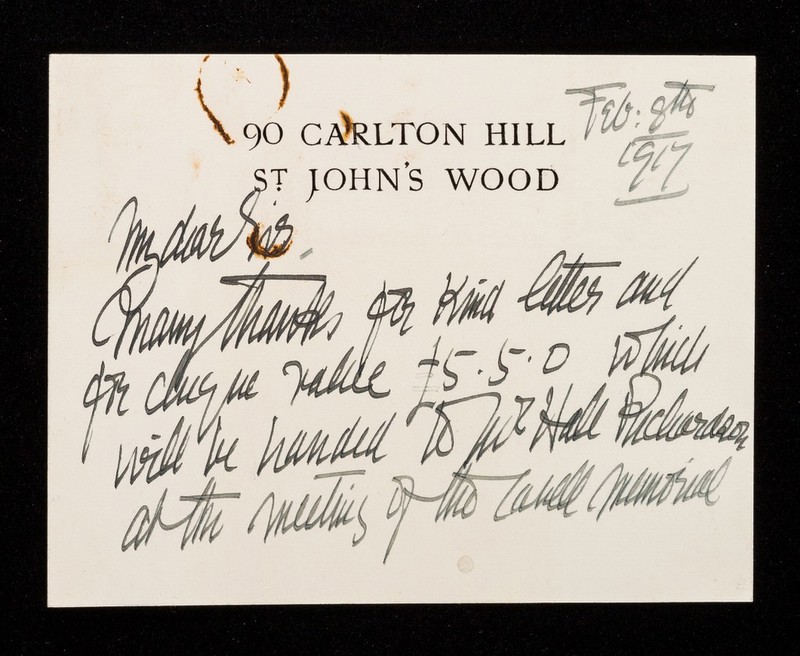 90 CARLTON HILL
ST JOHN'S WOOD
Feb: 8th
1917
My dear Sir.
Many thanks for kind letter and
for cheque value £5.5.0 which
will be handed to Mr Hall Richardson
at the meeting of the Cavell Memorial